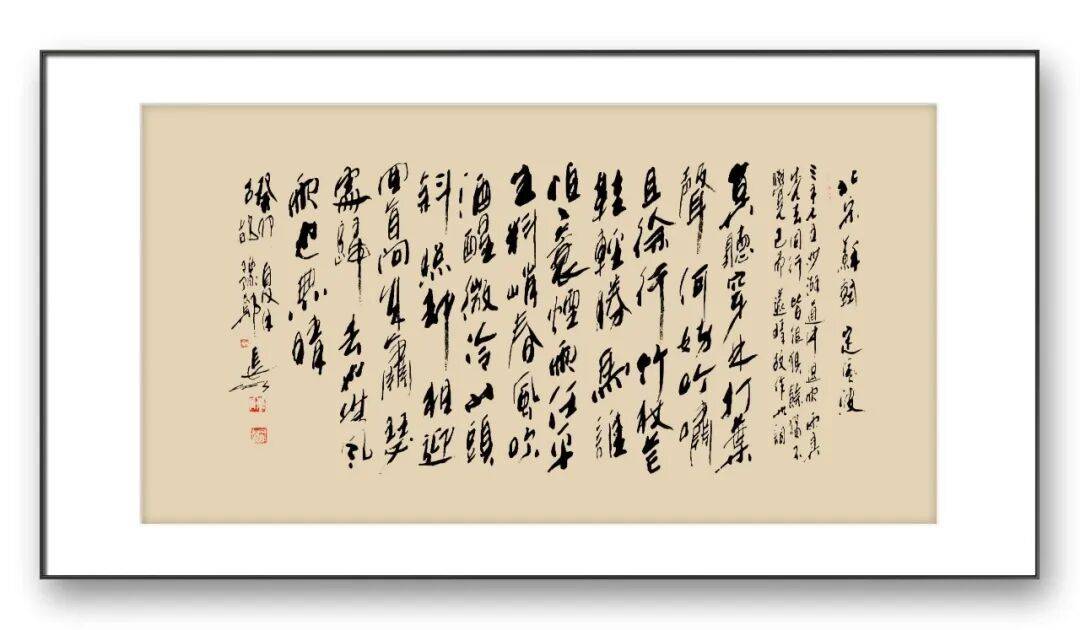 北宋蘇軾 定風波
三月七日沙湖道中遇雨雨具
先去同行皆狼狽餘獨不
覺已而遂晴故作此詞
莫聽穿林打葉
聲何妨吟嘯
且徐行竹杖芒
鞋輕勝馬誰
怕一蓑煙雨任平
生料峭春風吹
酒醒微冷山頭
斜照却相迎
回首向來蕭瑟
處歸去也無風
雨也無晴
癸卯夏